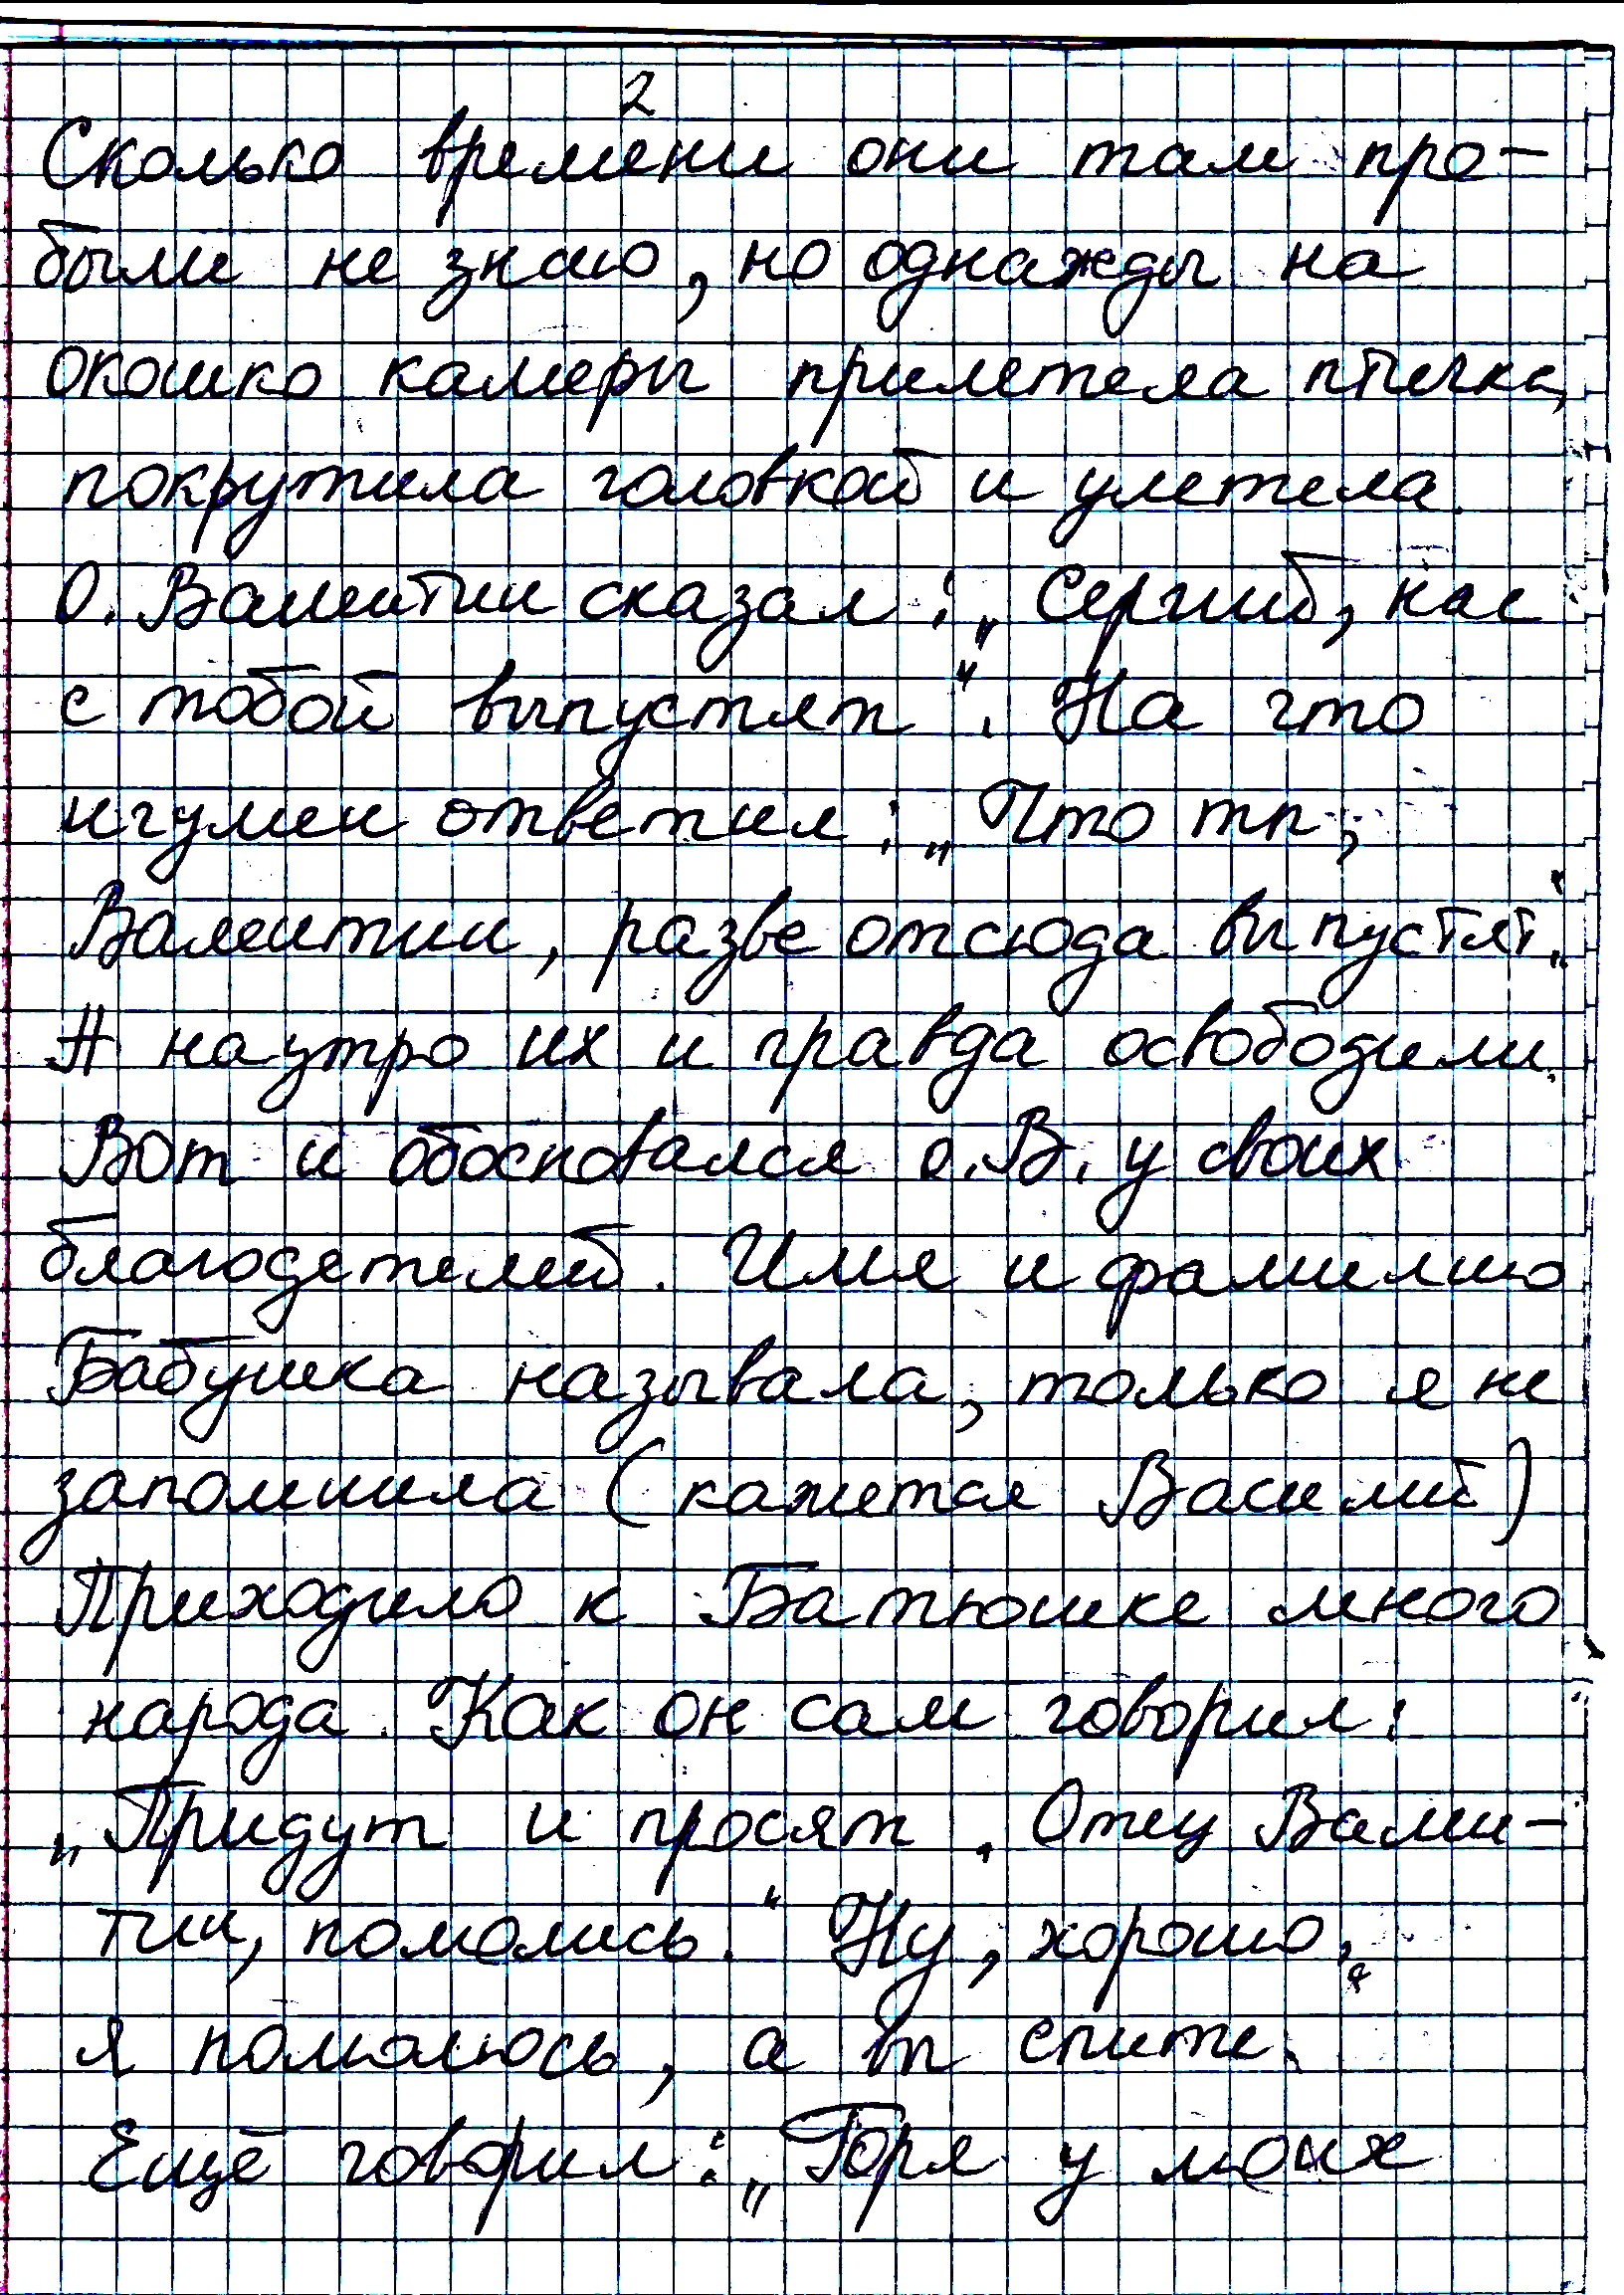 2
Сколько времени они там про-
были не знаю, но однажды на
окошко камеры прилетела птичка,
покрутила головкой и улетела.
О. Валентин сказал: „Сергий, нас
с тобой выпустят". На что
игумен ответил: „Что ты,
Валентин, разве отсюда выпустят."
А наутро их и правда освободили.
Вот и обосновался о. В. у своих
благодетелей. Имя и фамилию
Бабушка называла, только я не
запомнила (кажется Василий)
Приходило к Батюшке много
народа. Как он сам говорил:
„Придут и просят. Отец Вален-
тин, помолись." Ну, хорошо,
я помолюсь, а спите.
Ещё говорил: „Горя у моих